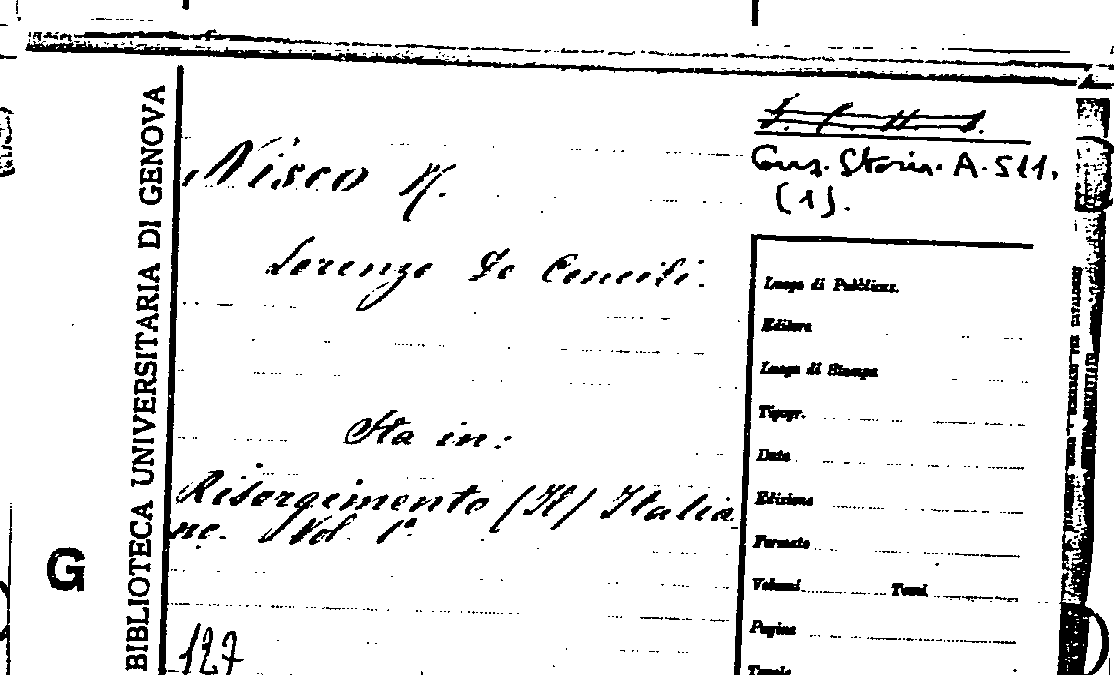 Nisco N.
Lorenzo De Concili.
Sta in:
Risorgimento (Il) Italia
no. Vol. 1°
127
Cons. Storia. A. 511.
(1).
Luogo di Pubblicaz.
Editore
Luogo di Stampa
Tipogr.
Data
Edizione
Formato
Volumi Tomi
Pagine
Tavole
BIBLIOTECA UNIVERSITARIA DI GENOVA
G